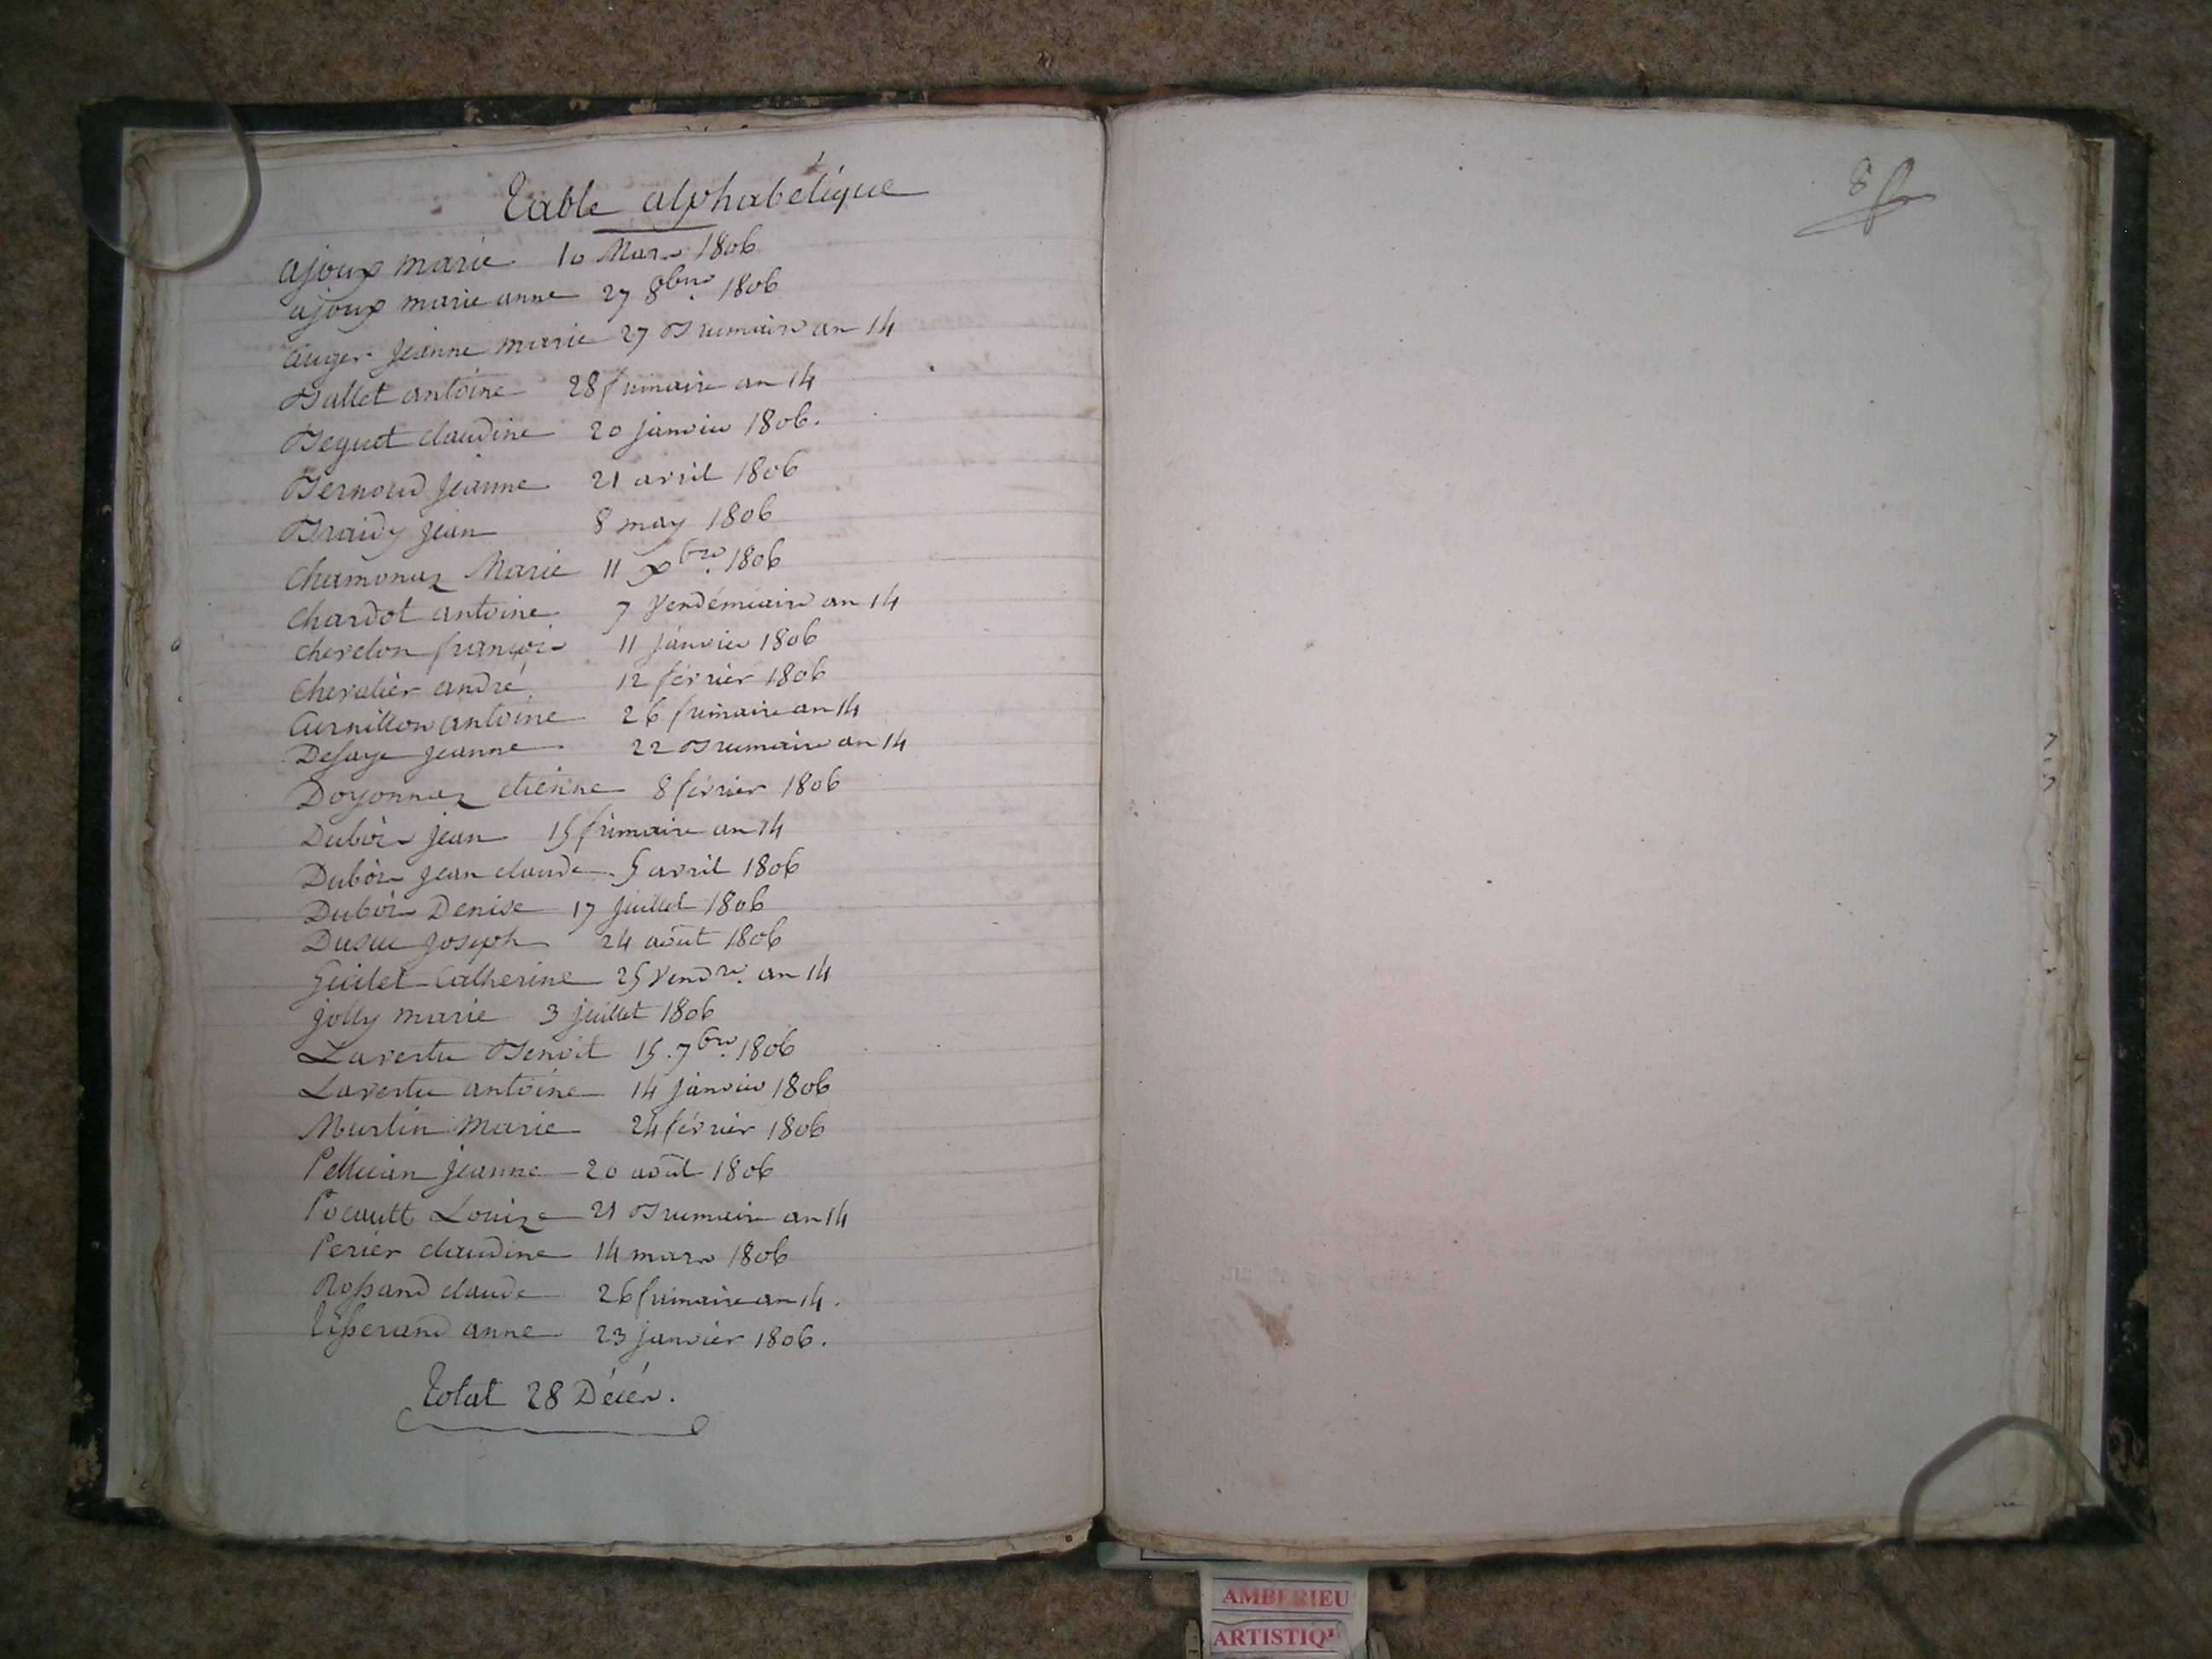 Table alphabétique
ajoux marie 10 Mars 1806
ajoux marie anne 27 8bre 1806
auger jeanne marie 27 Brumaire an 14
Ballet antoine 28 frimaire an 14
Beguet claudine 20 janvier 1806.
Bernoud jeanne 21 avril 1806
Braidy jean 8 may 1806
Chamonaz Marie 11 Xbre. 1806
Chardot antoine 7 Vendémiaire an 14
Chevelon françois 11 janvier 1806
Chevalier andré 12 février 1806
Curnillon antoine 26 frimaire an 14
Defaye jeanne 22 Brumaire an 14
Doyonnaz etienne 8 février 1806
Dubois jean 15 frimaire an 14
Dubois jean claude 5 avril 1806
Dubois Denise 17 juillet 1806
Dusuc joseph 24 août 1806
Catherine 25 Vendre. an 14
jolly marie 3 juillet 1806
Lavertu Benoit 15 7bre. 1806
Lavertu antoine 14 janvier 1806
Martin Marie 24 février 1806
jeanne 20 août 1806
Pocautt Louize 21 Brumaire an 14
Perier claudine 14 mars 1806
Rossand claude 26 frimaire an 14.
Tisserand anne 23 janvier 1806.
Total 28 Décès.
8
AMBERIEU
ARTISTIQU